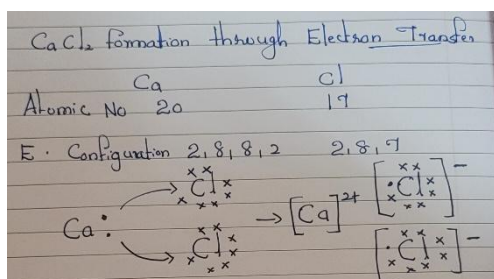 CaCl2 formation through Electron Transfer
Ca Cl
Atomic No 20 17
E. Configuration 2,8,8,2 2,8,7
Ca: Cl → [Ca]2+ [Cl]-
Cl [Cl]-